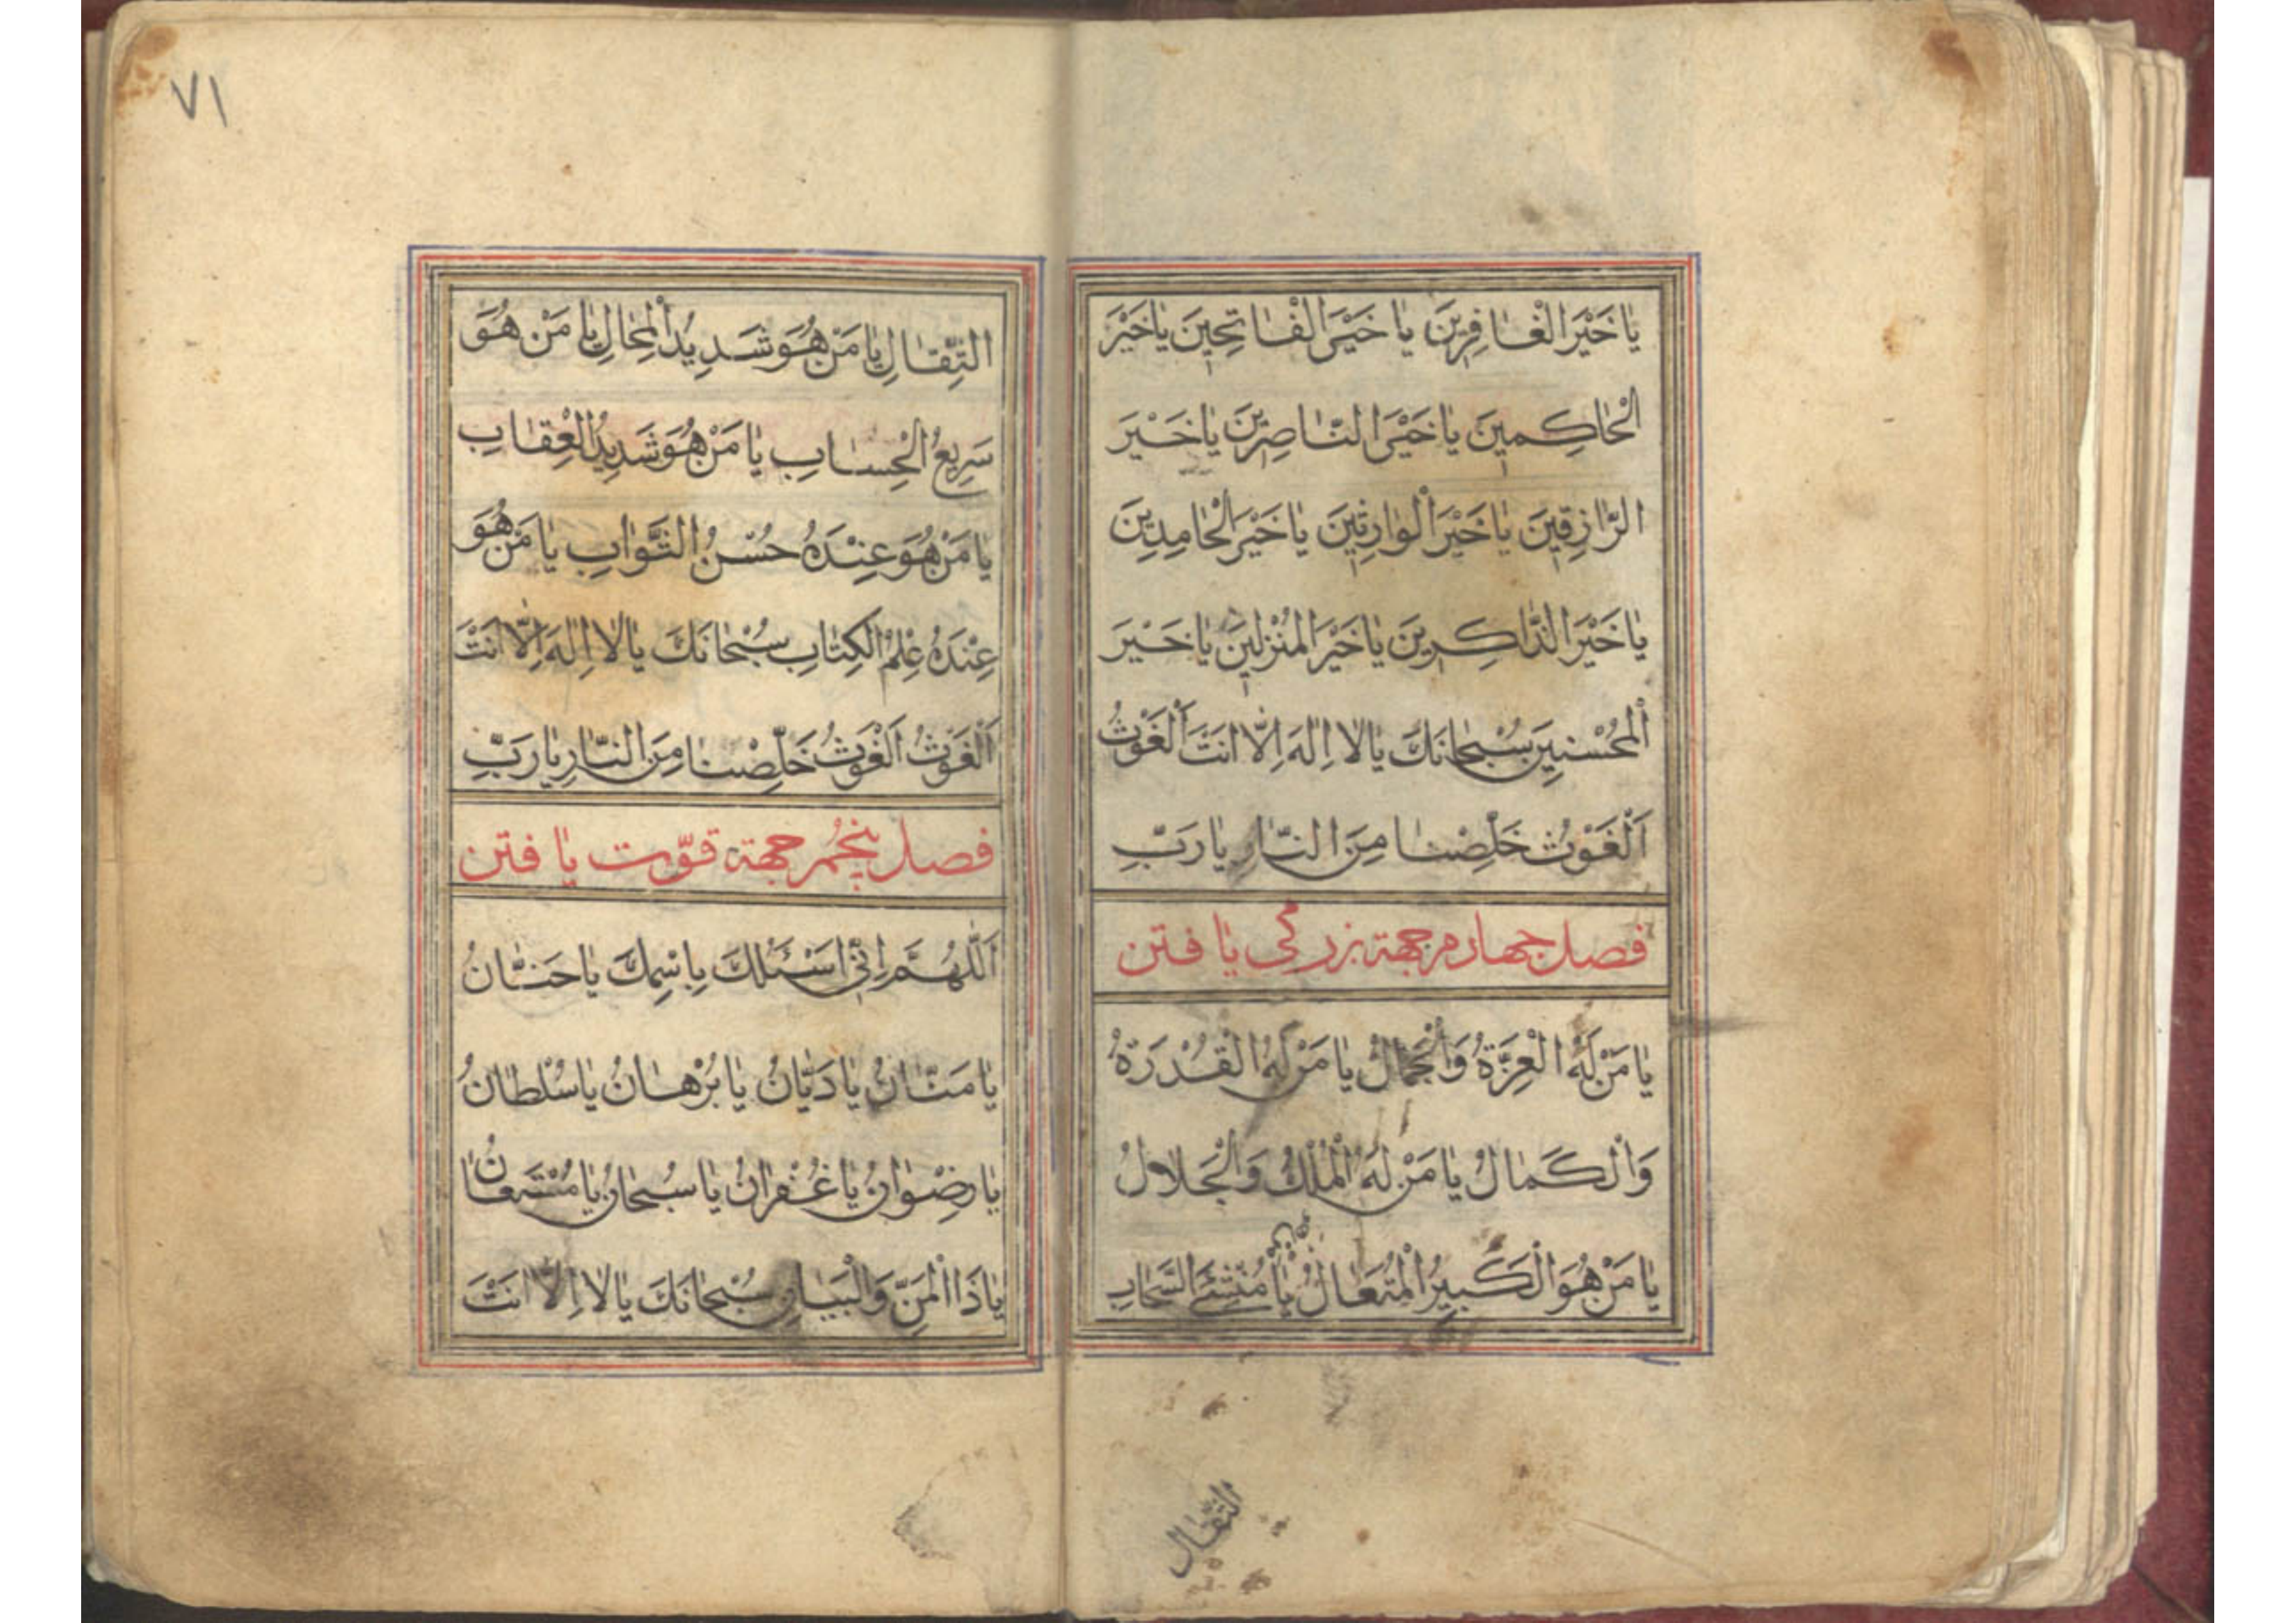 يا خَيْرَ الْغافِرينَ يا خَيْرَ الْفاتِحينَ يا خَيْرَ
الْحاكِمينَ يا خَيْرَ النّاصِرينَ يا خَيْرَ
الرّازِقينَ يا خَيْرَ الْوارِثينَ يا خَيْرَ الْحامِدينَ
يا خَيْرَ الذّاكِرينَ يا خَيْرَ الْمُنْزِلينَ يا خَيْرَ
الْمُحْسِنينَ سُبْحانَكَ يا لا اِلهَ اِلّا اَنْتَ اَلْغَوْثُ
اَلْغَوْثُ خَلِّصْنا مِنَ النّارِ يا رَبِّ
فصل چهارم جهة بزرگی یافتن
يا مَنْ لَهُ الْعِزَّةُ وَالْجَمالُ يا مَنْ لَهُ الْقُدْرَةُ
وَالْكَمالُ يا مَنْ لَهُ الْمُلْكُ وَالْجَلالُ
يا مَنْ هُوَ الْكَبيرُ الْمُتَعالُ يا مُنْشِئَ السَّحابِ
الثِّقال
٧١
الثِّقالِ يا مَنْ هُوَ شَديدُ الْمِحالِ يا مَنْ هُوَ
سَريعُ الْحِسابِ يا مَنْ هُوَ شَديدُ الْعِقابِ
يا مَنْ هُوَ عِنْدَهُ حُسْنُ الثَّوابِ يا مَنْ هُوَ
عِنْدَهُ عِلْمُ الْكِتابِ سُبْحانَكَ يا لا اِلهَ اِلّا اَنْتَ
اَلْغَوْثُ اَلْغَوْثُ خَلِّصْنا مِنَ النّارِ يا رَبِّ
فصل پنجم جهة قوّت یافتن
اَللّهُمَّ اِنّي اَسْئَلُكَ بِاسْمِكَ يا حَنّانُ
يا مَنّانُ يا دَيّانُ يا بُرْهانُ يا سُلْطانُ
يا رِضْوانُ يا غُفْرانُ يا سُبْحانُ يا مُسْتَعانُ
يا ذَا الْمَنِّ وَالْبَيانِ سُبْحانَكَ يا لا اِلّا اَنْتَ